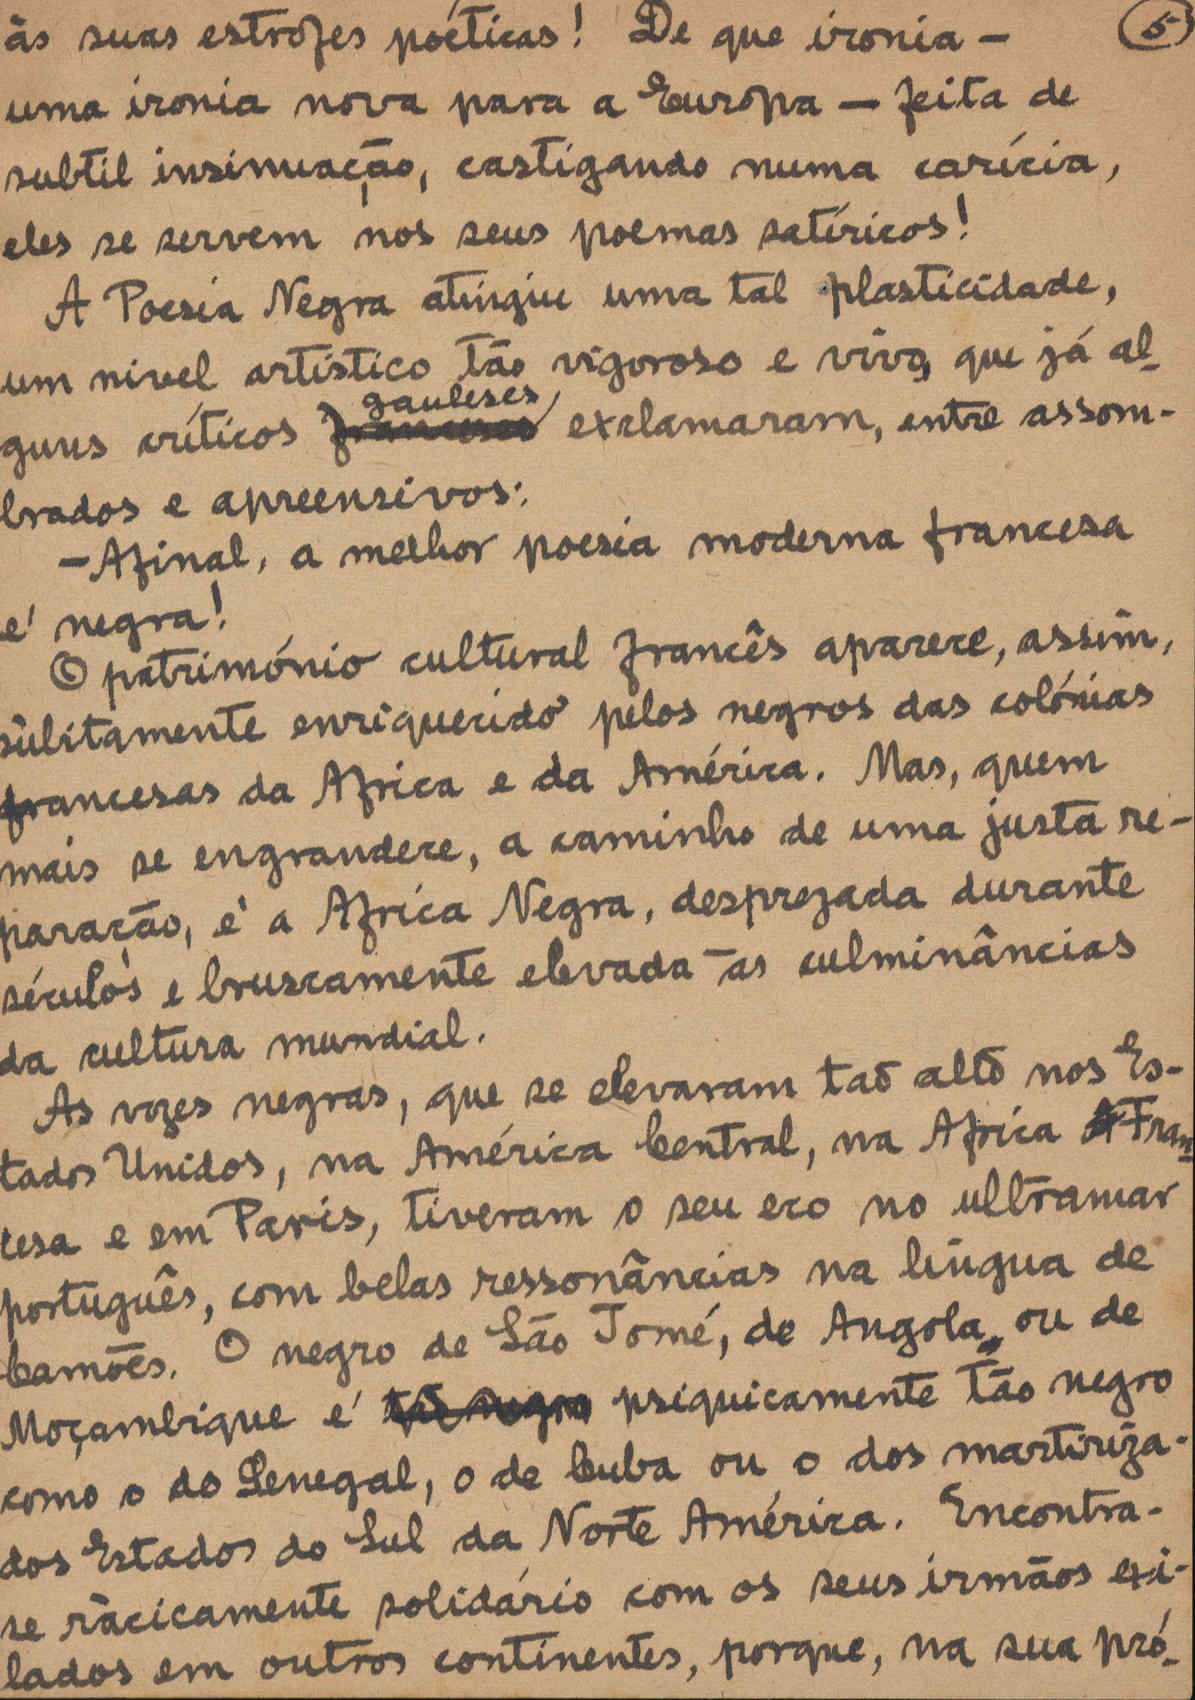 às suas estrofes poéticas! De que ironia – 5
uma ironia nova para a Europa – feita de
subtil insinuação, castigando numa carícia,
eles se servem nos seus poemas satíricos!
A Poesia Negra atingiu uma tal plasticidade,
um nível artístico tão vigoroso e vivo, que já al-
gauleses
guns críticos franceses exclamaram, entre assom-
brados e apreensivos:
– Afinal, a melhor poesia moderna francesa
é negra!
O património cultural francês aparece, assim,
sùbitamente enriquecido pelos negros das colónias
francesas da Africa e da América. Mas, quem
mais se engrandece, a caminho de uma justa re-
paração, é a Africa Negra, desprezada durante
séculos e bruscamente elevada às culminâncias
da cultura mundial.
As vozes negras, que se elevaram tão alto nos Es-
tados Unidos, na América Central, na Africa Fran-
cesa e em Paris, tiveram o seu eco no ultramar
português, com belas ressonâncias na língua de
Camões. O negro de São Tomé, de Angola ou de
Moçambique é tão negro psiquicamente tão negro
como o do Senegal, o de Cuba ou o dos martiriza-
dos Estados do Sul da Norte América. Encontra-
se ràcicamente solidário com os seus irmãos exi-
lados em outros continentes, porque, na sua pró-